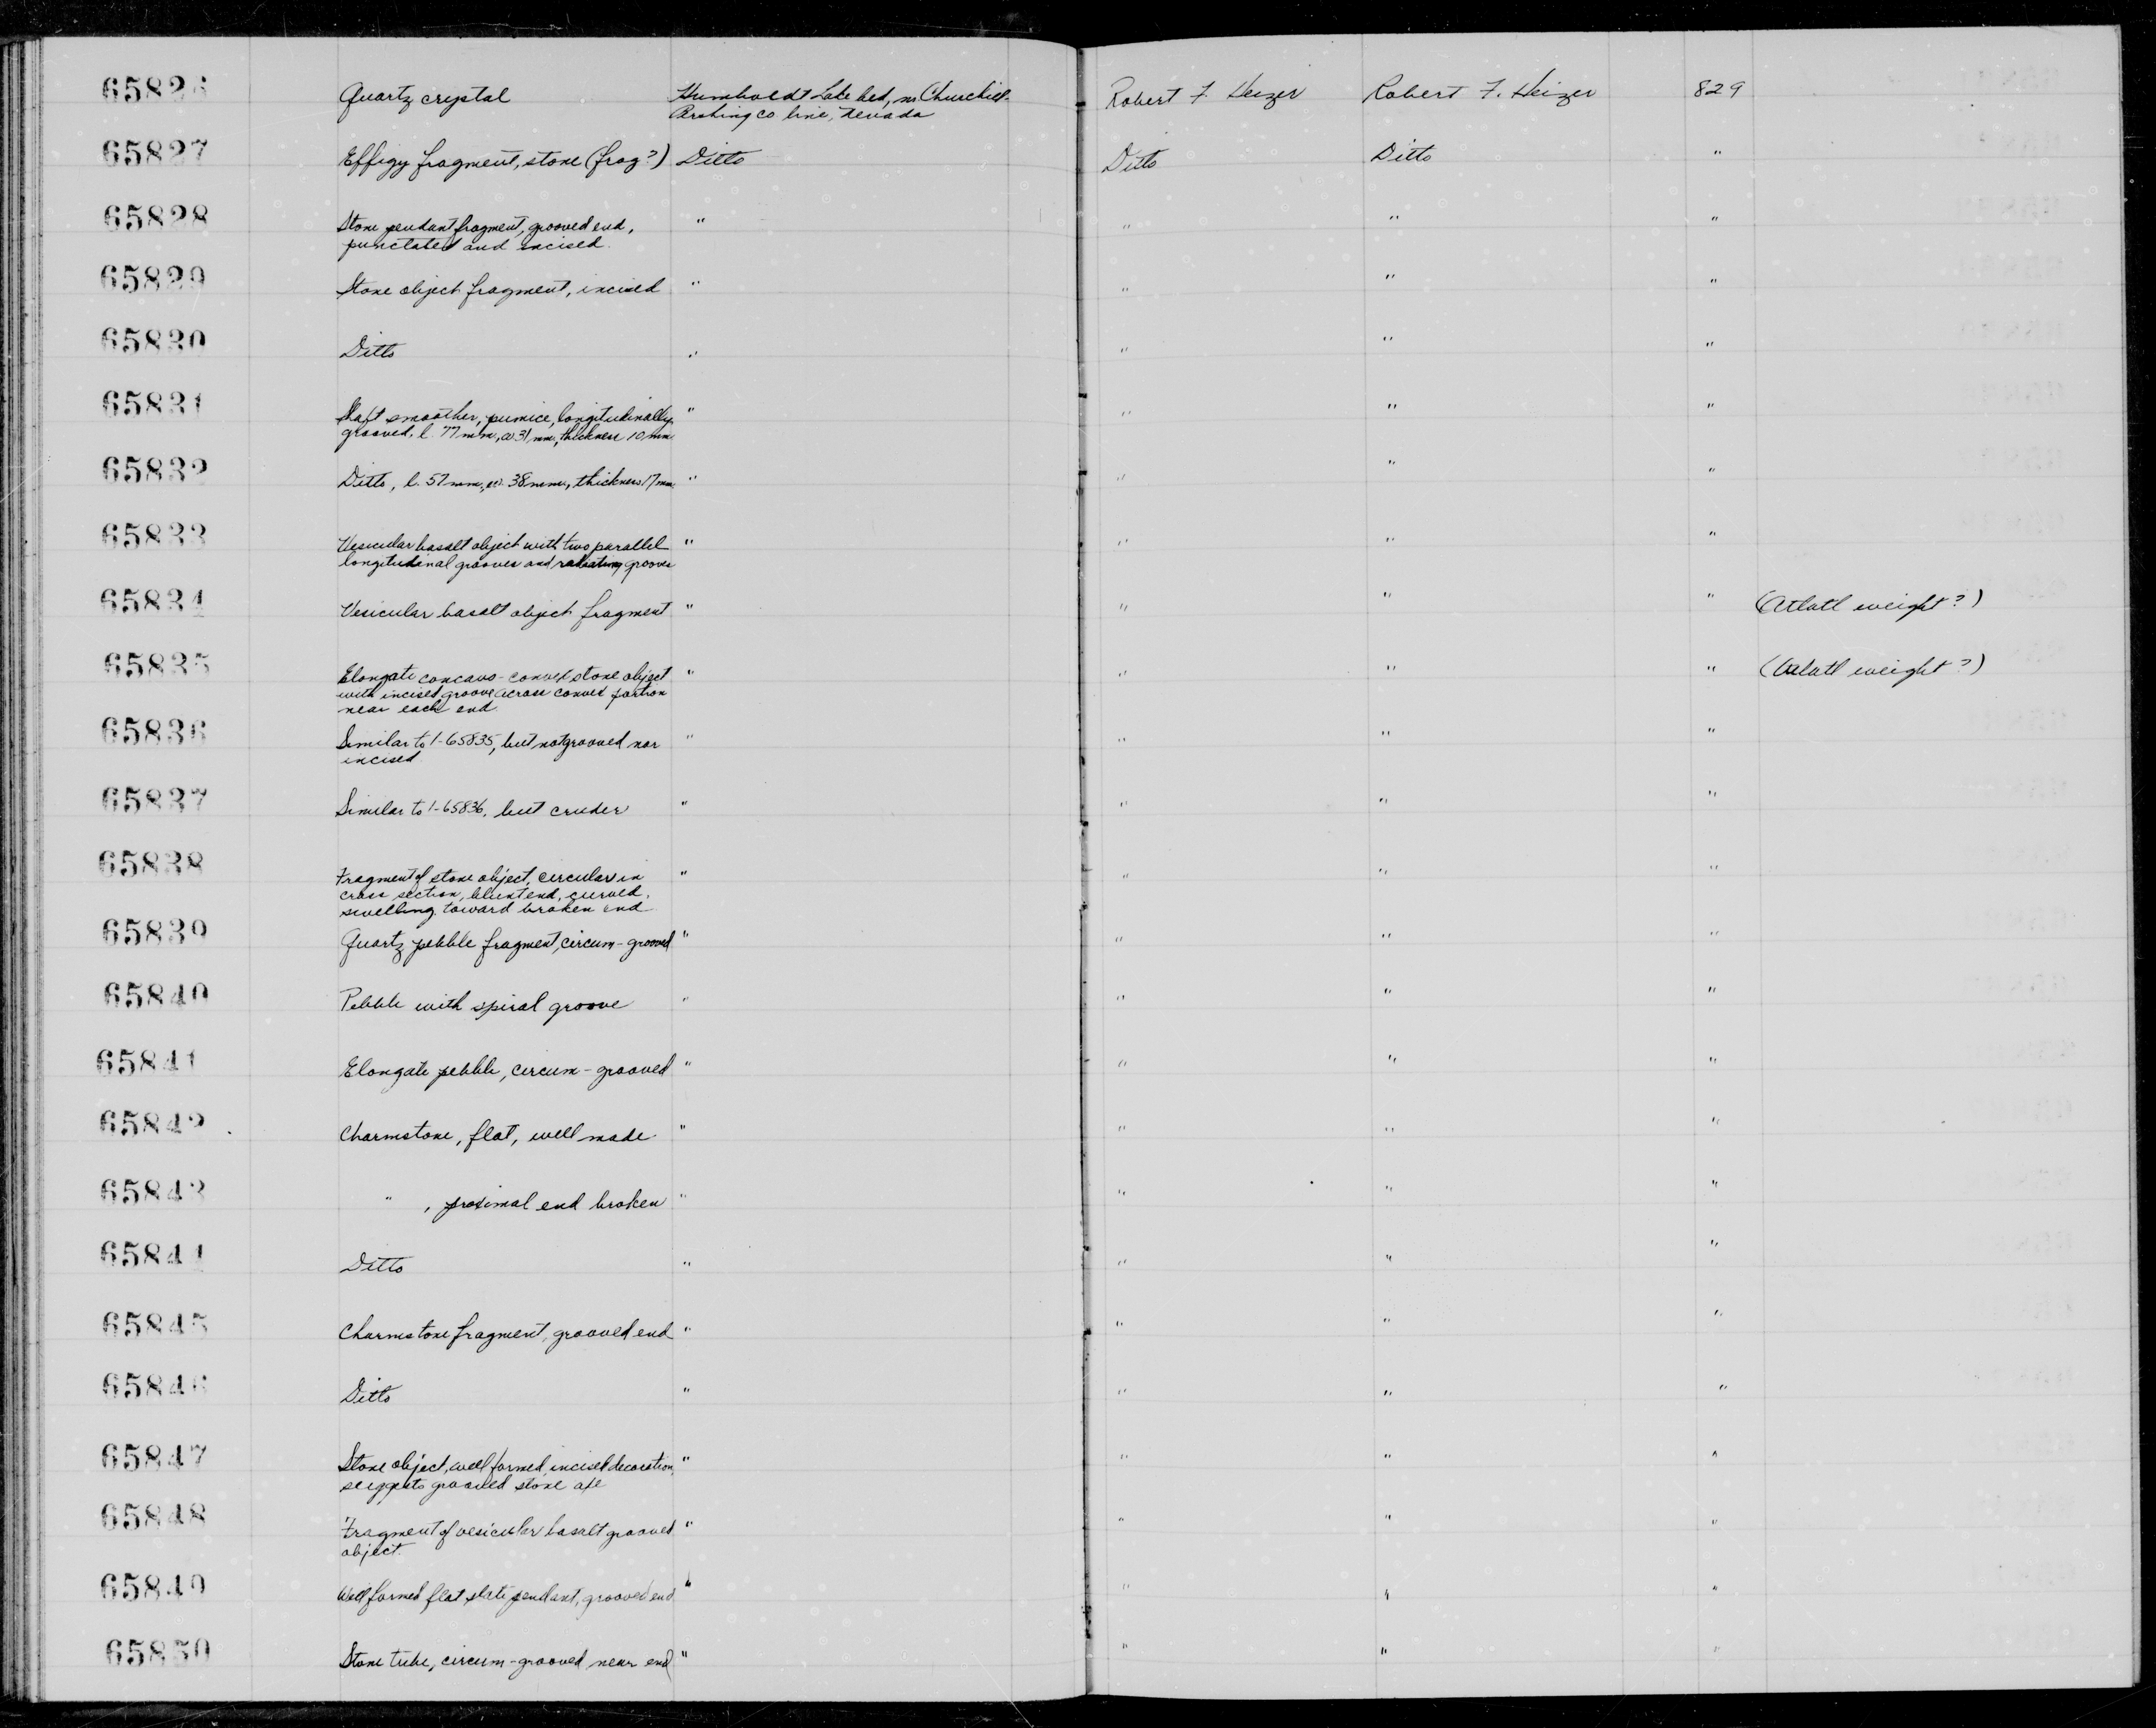 65826 Quartz crystal Humboldt Lake bed, nr. Churchill- Robert F. Heizer Robert F. Heizer 829
Pershing Co. line, Nevada
65827 Effigy fragment, stone (frog?) Ditto Ditto Ditto "
65828 Stone pendant fragment, grooved end, " " " "
punctated and incised.
65829 Stone object fragment, incised " " " "
65830 Ditto " " " "
65831 Shaft smoother, pumice, longitudinally " " " "
grooved, l. 77mm, w 31mm, thickness 10mm
65832 Ditto, l. 57mm, w. 38mm, thickness 17mm " " " "
65833 Vesicular basalt object with two parallel " " " "
longitudinal grooves and radiating grooves
65834 Vesicular basalt object fragment " " " " (Atlatl weight?)
65835 Elongate concavo-convex stone object " " " " (Atlatl weight?)
with incised groove across convex portion
near each end
65836 Similar to 1-65835, but not grooved nor " " " "
incised
65837 Similar to 1-65836, but cruder " " " "
65838 Fragment of stone object, circular in " " " "
cross section, blunt end, curved,
swelling toward broken end
65839 Quartz pebble fragment, circum-grooved " " " "
65840 Pebble with spiral groove " " " "
65841 Elongate pebble, circum-grooved " " " "
65842 Charmstone, flat, well made " " " "
65843 " , proximal end broken " " " "
65844 Ditto " " " "
65845 Charmstone fragment, grooved end " " " "
65846 Ditto " " " "
65847 Stone object, well formed, incised decoration, " " " "
suggests grooved stone axe
65848 Fragment of vesicular basalt grooved " " " "
object.
65849 Well formed flat slate pendant, grooved end " " " "
65850 Stone tube, circum-grooved near end " " " "